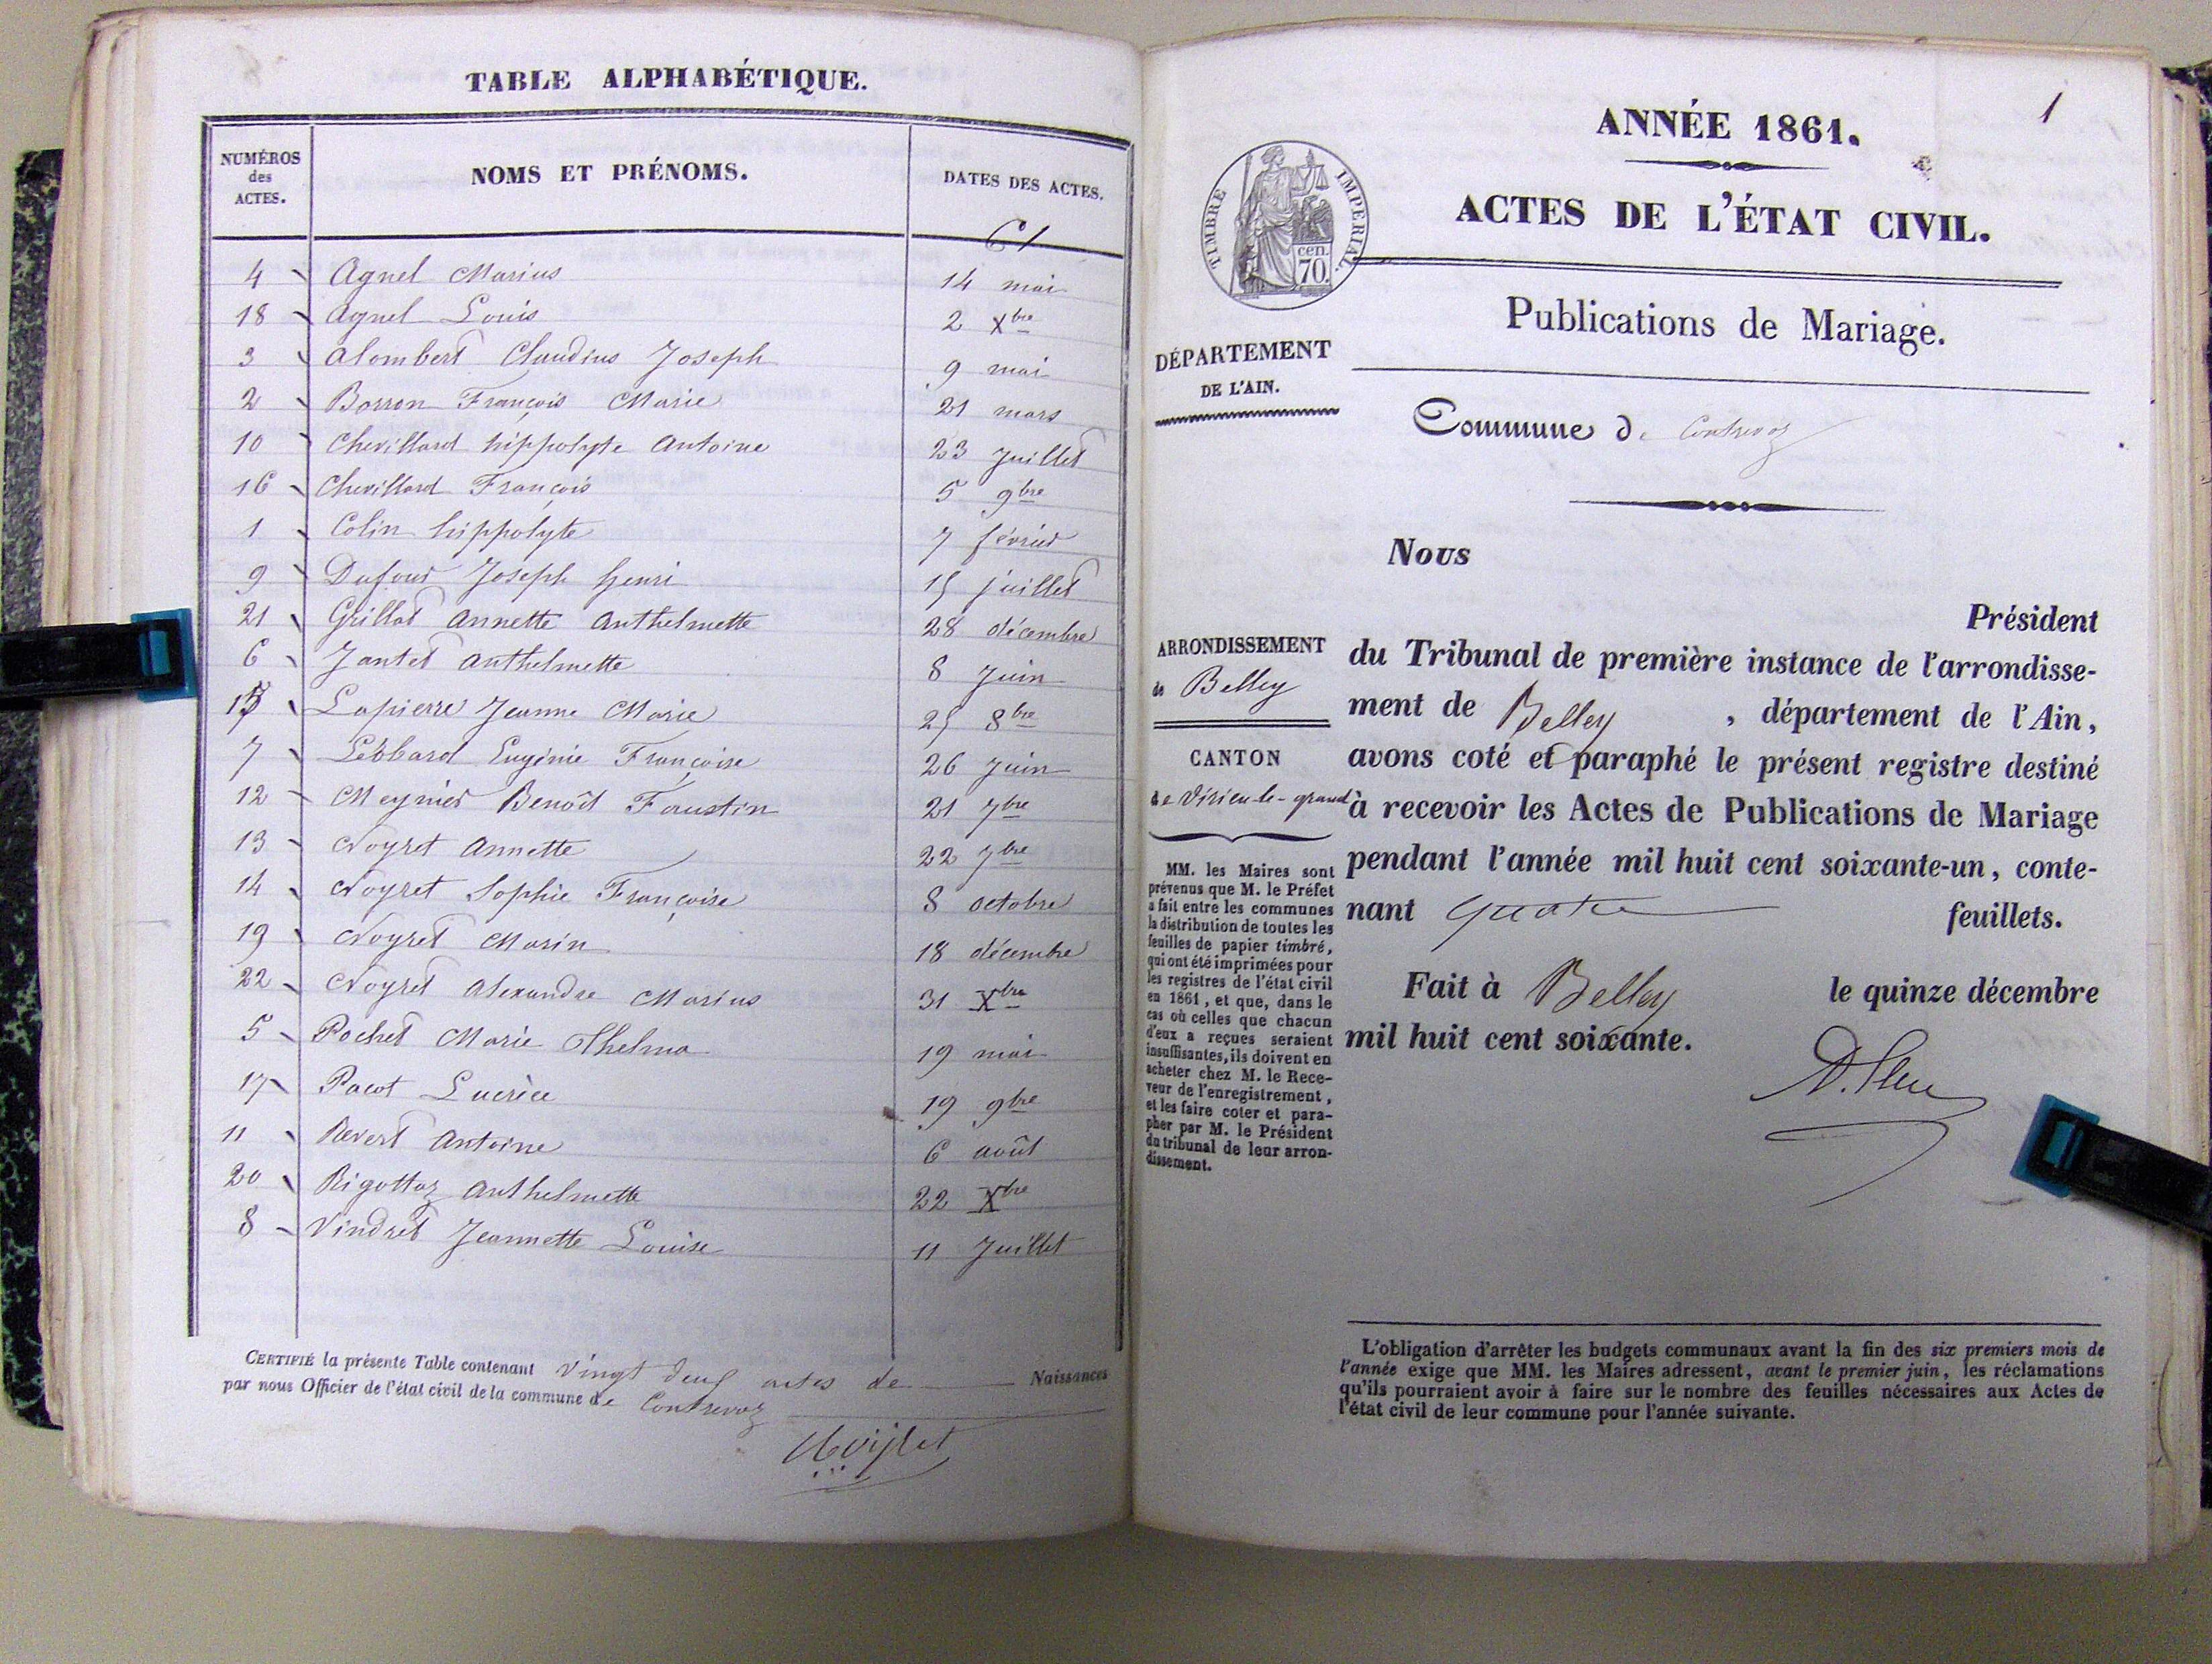 TABLE ALPHABÉTIQUE.
NUMÉROS des ACTES.
NOMS ET PRÉNOMS.
DATES DES ACTES.
61
4 Agnel Marius 14 mai
18 Agnel Louis 2 Xbre
3 Alombert Claudius Joseph 9 mai
2 Borron François Marie 21 mars
10 Chevillard hippolyte Antoine 23 Juillet
16 Chevillard François 5 9bre
1 Colin hippolyte 7 février
9 Dufour Joseph henri 15 juillet
21 Grillot Annette Anthelmette 28 décembre
6 Jantet Anthelmette 8 Juin
15 Lapierre Jeanne Marie 25 8bre
7 Eugénie Françoise 26 Juin
12 Meynier Benoît Faustin 21 7bre
13 Noyret Annette 22 7bre
14 Noyret Sophie Françoise 8 octobre
19 Noyret Marin 18 décembre
22 Noyret Alexandre Marius 31 Xbre
5 Pochet Marie Thelma 19 mai
17 Pacot Lucrèce 19 9bre
11 Revert Antoine 6 août
20 Rigottaz Anthelmette 22 Xbre
8 Vindret Jeannette Louise 11 Juillet
CERTIFIÉ la présente Table contenant vingt deux actes de Naissances
par nous Officier de l'état civil de la commune de Contrevoz
1
ANNÉE 1861.
ACTES DE L'ÉTAT CIVIL.
TIMBRE IMPERIAL.
cen.
70.
Publications de Mariage.
DÉPARTEMENT
DE L'AIN.
Commune de Contrevoz
Nous
Président
ARRONDISSEMENT
de Belley
CANTON
de Virieu-le-grand
du Tribunal de première instance de l'arrondisse-
ment de Belley, département de l'Ain,
avons coté et paraphé le présent registre destiné
à recevoir les Actes de Publications de Mariage
pendant l'année mil huit cent soixante-un, conte-
nant quatre feuillets.
Fait à Belley le quinze décembre
mil huit cent soixante.
MM. les Maires sont
prévenus que M. le Préfet
a fait entre les communes
la distribution de toutes les
feuilles de papier timbré,
qui ont été imprimées pour
les registres de l'état civil
en 1861, et que, dans le
cas où celles que chacun
d'eux a reçues seraient
insuffisantes, ils doivent en
acheter chez M. le Rece-
veur de l'enregistrement,
et les faire coter et para-
pher par M. le Président
du tribunal de leur arron-
dissement.
L'obligation d'arrêter les budgets communaux avant la fin des six premiers mois de
l'année exige que MM. les Maires adressent, avant le premier juin, les réclamations
qu'ils pourraient avoir à faire sur le nombre des feuilles nécessaires aux Actes de
l'état civil de leur commune pour l'année suivante.